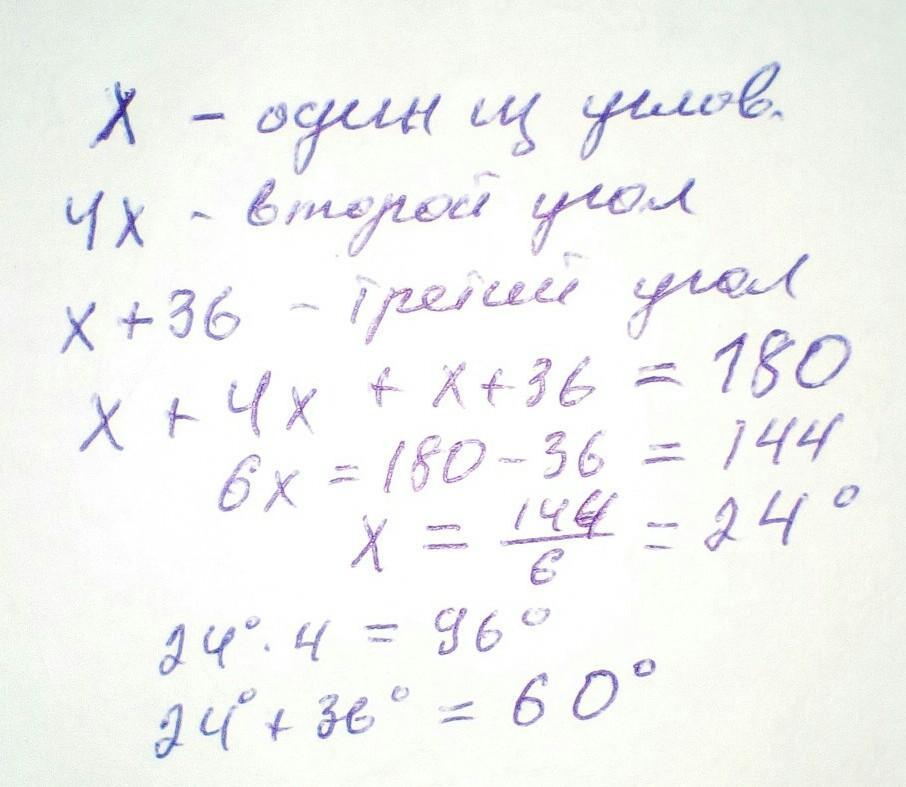 x - один из углов.
4x - второй угол
x+36 - третий угол
x + 4x + x+36 = 180
6x = 180-36 = 144
x = 144/6 = 24°
24°·4 = 96°
24°+36° = 60°